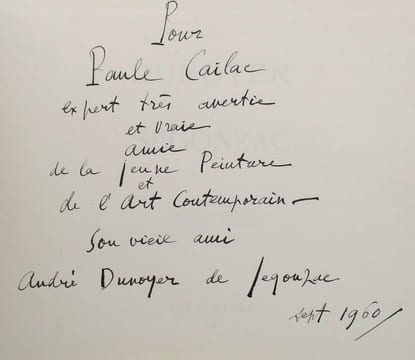 Pour
Paule Cailac
expert très avertie
et vraie
amie
de la jeune Peinture
et
de l'Art Contemporain —
Son vieil ami
André Dunoyer de Segonzac
Sept 1960